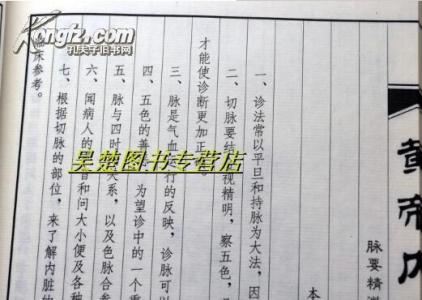 黄帝内
脉要精
本
一、诊法常以平旦和持脉为大法，因
二、切脉要结 视精明，察五色，
才能使诊断更加正
三、脉是气血 行的反映，诊脉可以
四、五色的善 为望诊中的一个重
五、脉与四时 关系，以及色脉合参
六、闻病人的 音和问大小便及各种
七、根据切脉的部位，来了解内脏的
临床参考。
Kongfz.com
孔夫子旧书网
吴楚图书专营店